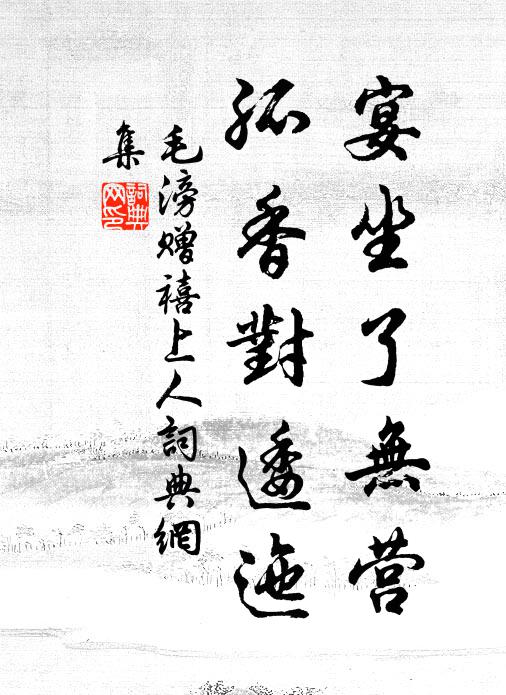 宴坐了無营
孤香對逶迤
毛滂贈禧上人詞典網
集
詞典网印